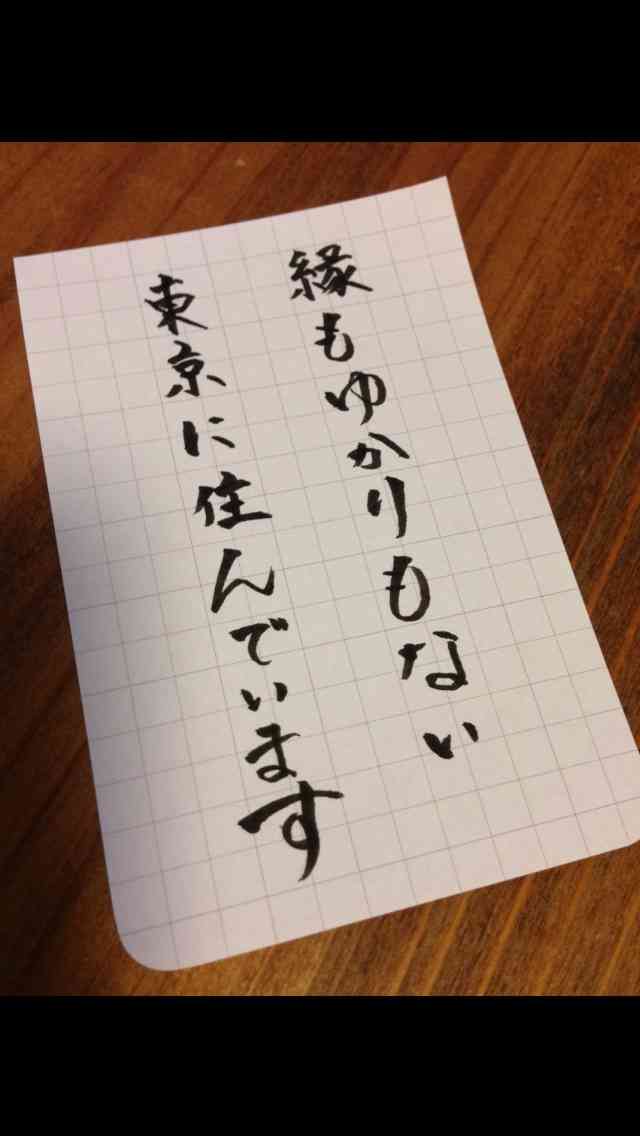 縁もゆかりもない
東京に住んでいます